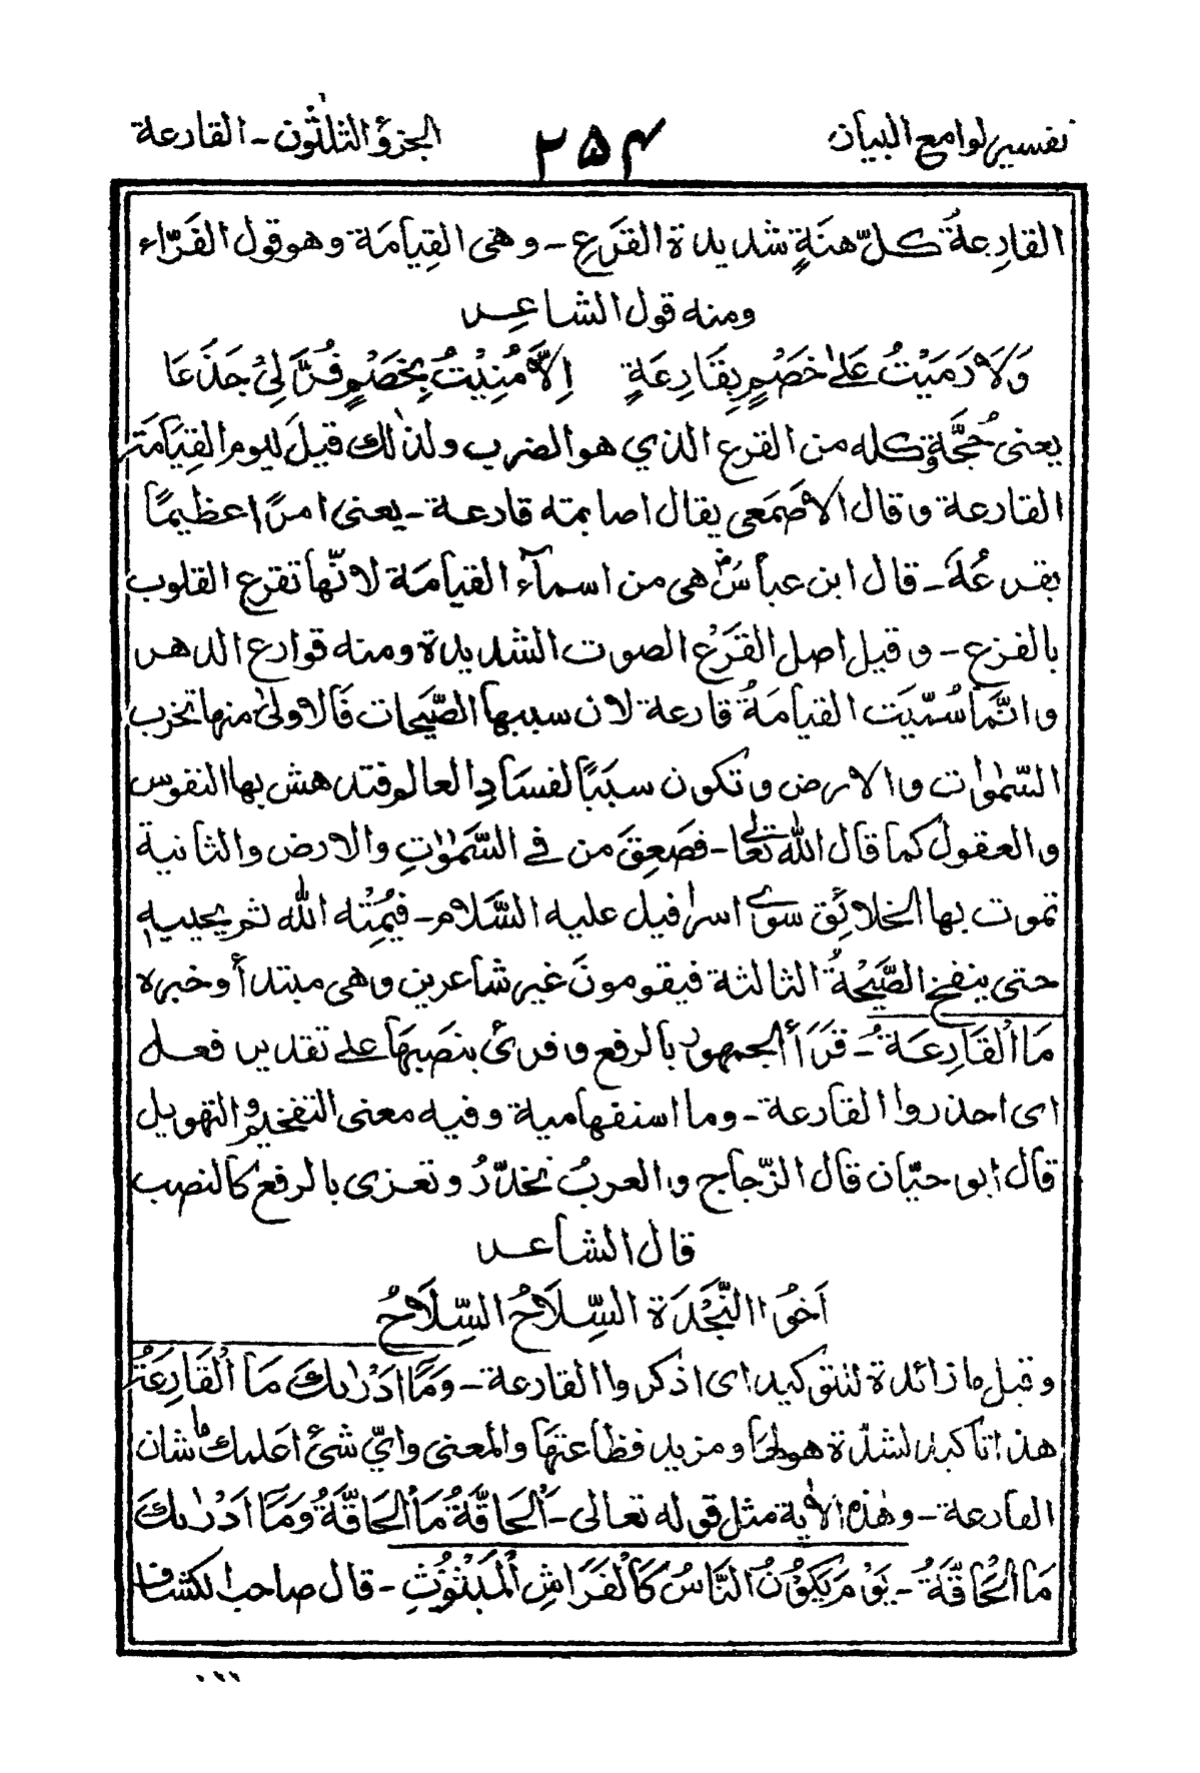 تفسير لوامع البيان ٢٥٤ الجزؤ الثلٰثون - القارعة
القارِعةُ كلّ هنَةٍ شديدة القَرَعِ - وهى القِيامَة وهو قول الفَرّاء
ومنه قول الشاعِر
وَلَا رَمَيْتُ عَلىٰ خَصْمٍ بِقَارِعَةٍ اِلاَّ مُنِيْتُ بِخَصْمٍ فُرَّ لِىْ جَذَعَا
يعنى حُجَّة وكله من القرع الذي هو الضرب ولذٰلك قيلَ ليوم القِيَامَة
القارعة وقال الاَصْمَعى يقال اصابته قارعة - يعنى امرًا عظيمًا
يقرعُهُ - قال ابن عباسؓ هى من اسمآء القيامَة لانّها تقرع القلوب
بالفزع - وقيل اصل القَرْع الصوت الشديدة ومنه قوارع الدهر
وانَّمَا سُمّيَت القيامَةُ قارعة لان سببها الصَّيحات فَالاولىٰ منها تخرب
السّمٰوٰت والارض وتكون سبَبًا لفسَادِ العالم فتدهش بها النفوس
والعقول كما قال الله تعالٰى - فصَعِقَ من فى السَّمٰوٰتِ والارض والثانية
تموت بها الخلائِق سوىٰ اسرافيل عليه السَّلام - فيُمِتْه الله ثم يحييه
حتى ينفخ الصَّيْحَةُ الثالثة فيقومونَ غير شاعرين وهى مبتدأ وخبره
مَا الْقَارِعَةُ - قَرَأَ الجمهور بالرفع وقرئ بنصَبِهَا على تقدير فعل
اى احذروا القارعة - وما استفهامية وفيه معنى التفخيم والتهويل
قال ابو حيّان قال الزّجاج والعربُ تخدّرُ وتغرى بالرفع كالنصب
قال الشاعر
اَخُوْا النَّجْدَة السِّلَاحُ السِّلَاحُ
وقيل ما زائدة للتوكيد اى اذكروا القارعة - وَمَا اَدْرٰىكَ مَا الْقَارِعَةُ
هذا تاكيد لشدّة هولها ومزيد فظاعتهَا والمعنى وايّ شئ اعلمك ما شان
القارعة - وهٰذه الاٰية مثل قوله تعالى - اَلْحَاقَّةُ مَا الْحَاقَّةُ وَمَا اَدْرٰىكَ
مَا الْحَاقَّةُ - يَوْمَ يَكُوْنُ النَّاسُ كَالْفَرَاشِ الْمَبْثُوْثِ - قال صاحب الكشاف